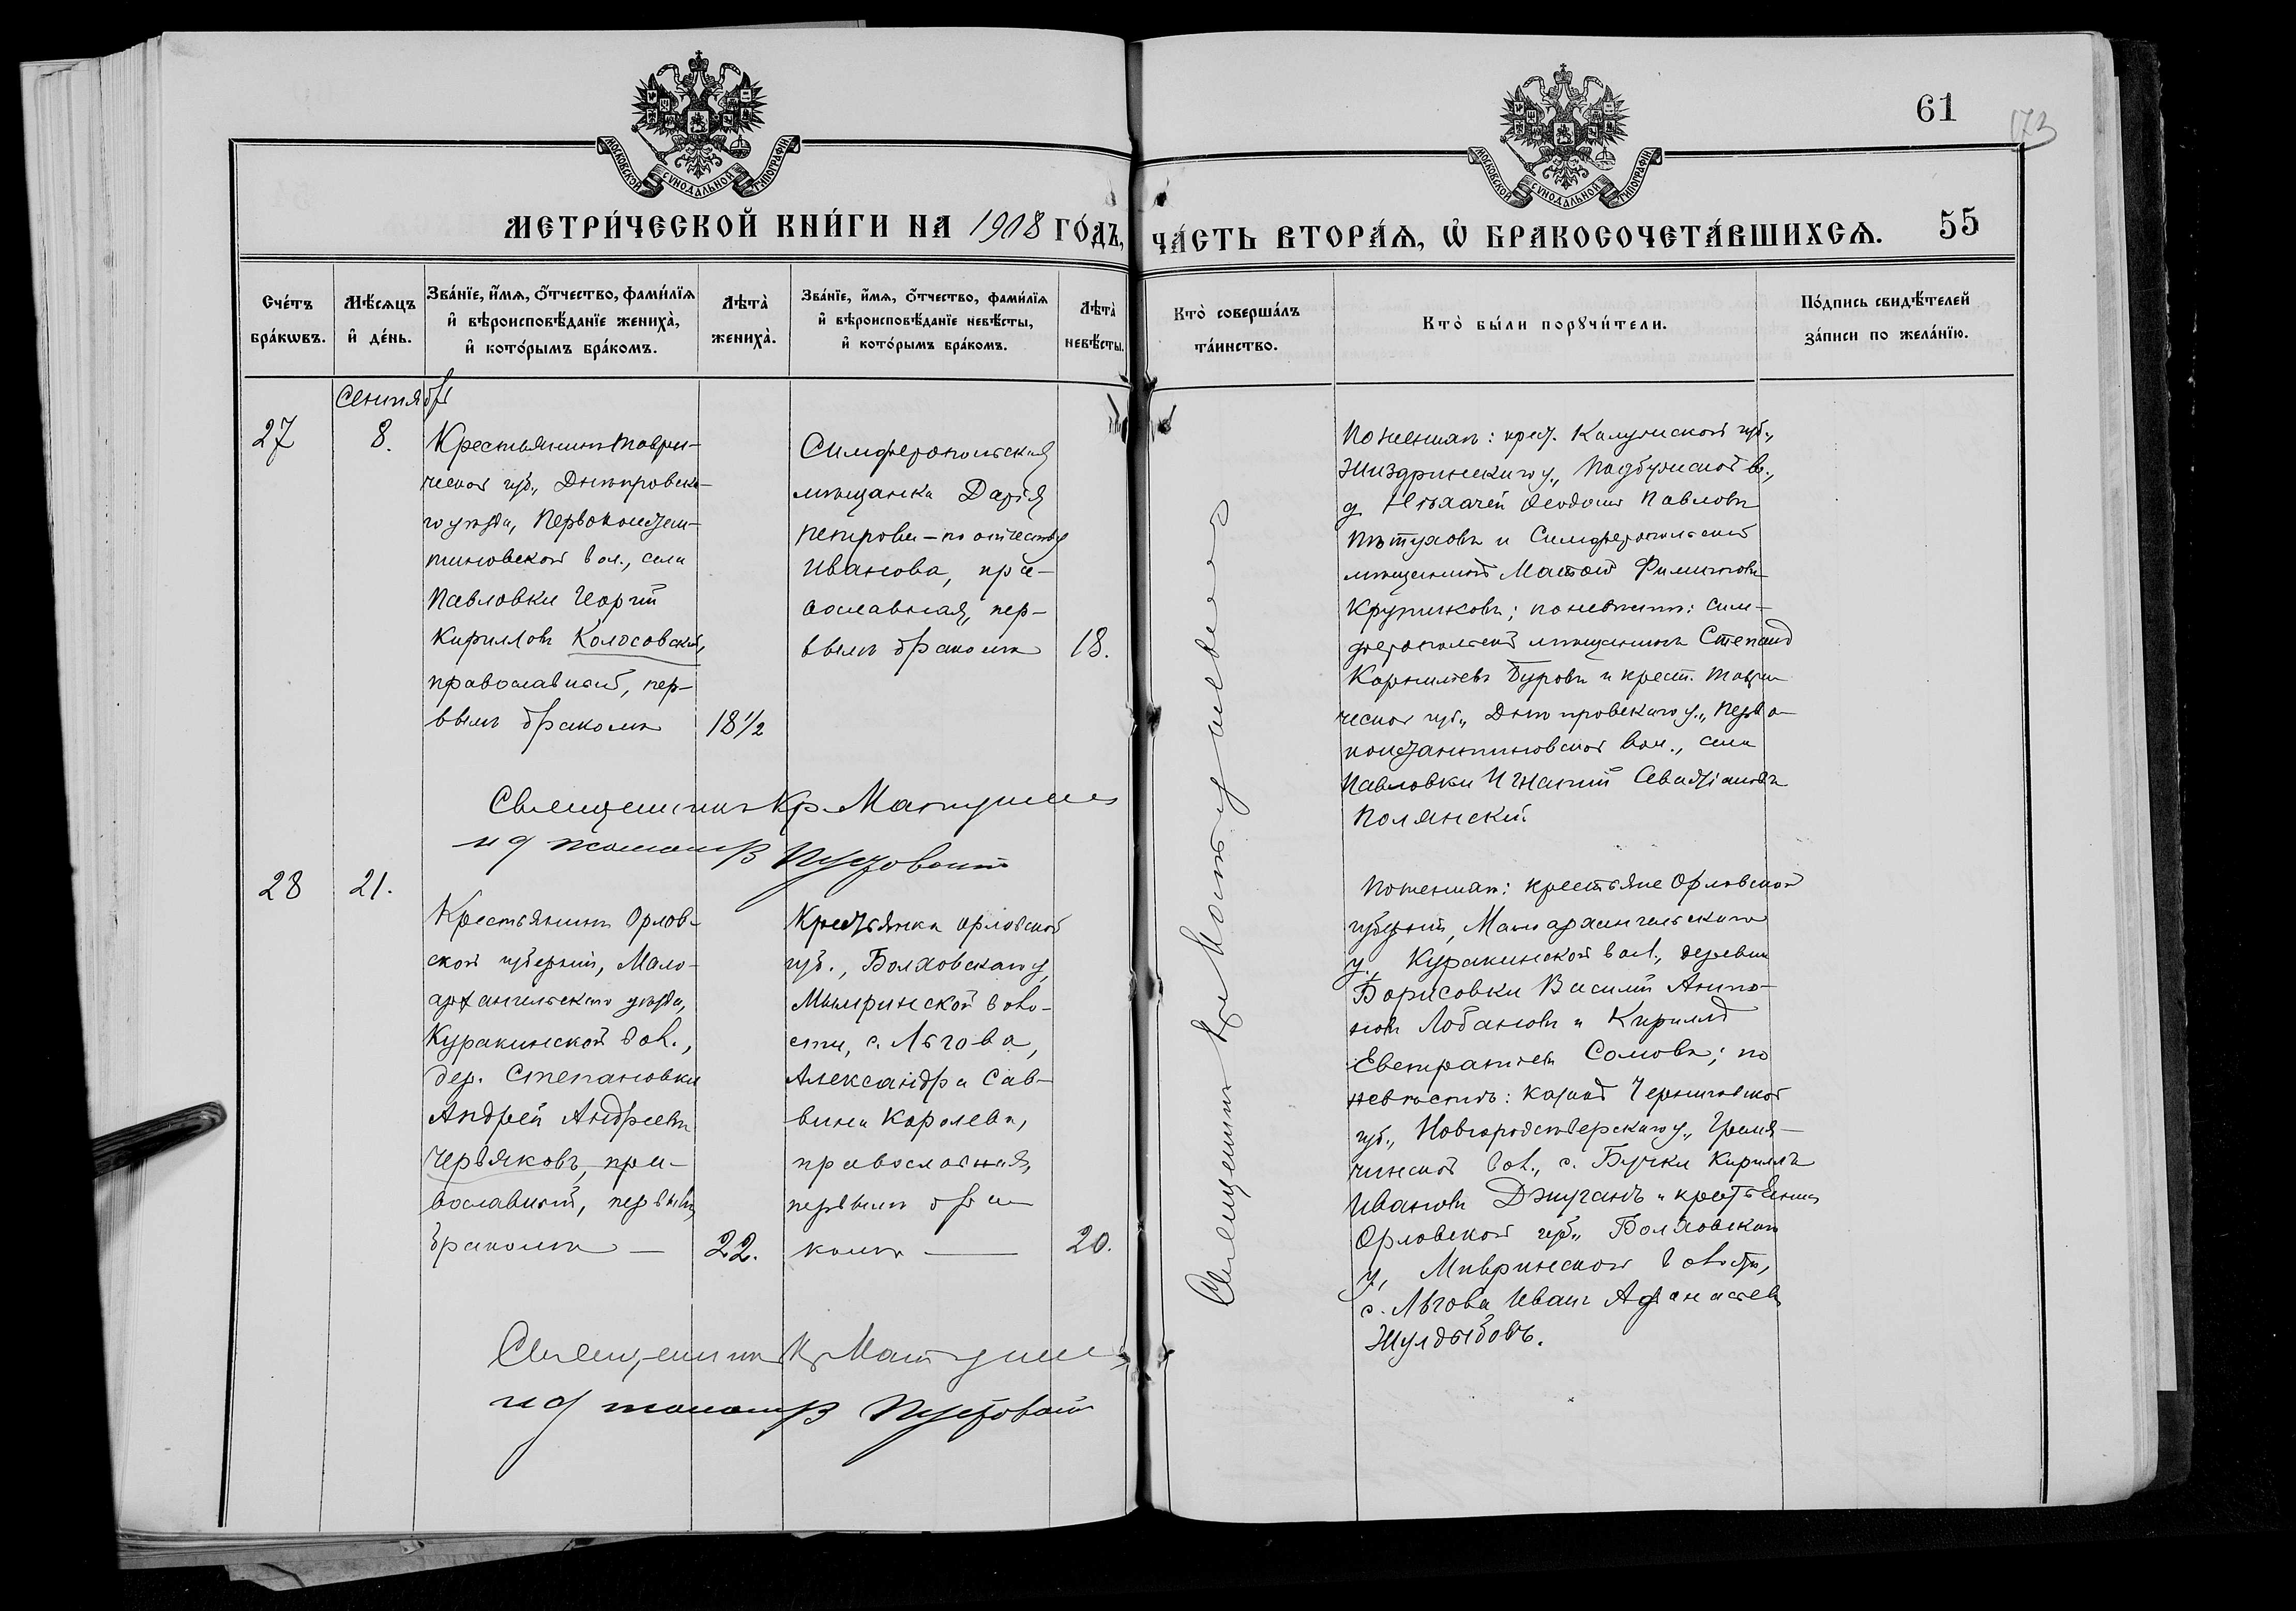 61
173
МОСКОВСКОЙ СУНОДАЛЬНОЙ ТИПОГРАФІИ
МОСКОВСКОЙ СУНОДАЛЬНОЙ ТИПОГРАФІИ
МЕТРИ́ЧЕСКОЙ КНИ́ГИ НА 1908 ГО́ДЪ,
ЧА́СТЬ ВТОРА́Ѧ, Ѡ҆ БРАКОСОЧЕТА́ВШИХСѦ. 55
Сче́тъ
бра́кѡвъ.
Мѣ́сѧцъ
и҆ де́нь.
Зва́нїе, и҆́мѧ, ѻ҆́тчество, фами́лїѧ
и҆ вѣроисповѣ́данїе жениха̀,
и҆ кото́рымъ бра́комъ.
Лѣта̀
жениха̀.
Зва́нїе, и҆́мѧ, ѻ҆́тчество, фами́лїѧ
и҆ вѣроисповѣ́данїе невѣ́сты,
и҆ кото́рымъ бра́комъ.
Лѣта̀
невѣ́сты.
Кто̀ соверша́лъ
та́инство.
Кто̀ бы́ли порꙋчи́тели.
По́дпись свидѣ́телей
за́писи по жела́нїю.
Сентябрь
27
8.
Крестьянинъ Таври-
ческой губ., Днѣпровска-
го уѣзда, Первоконстан-
тиновской вол., села
Павловки Георгій
Кирилловъ Колосовскій,
православный, пер-
вымъ бракомъ
18½
Симферопольская
мѣщанка Дарія
Петрова - по отчеству
Иванова, пра-
вославная, пер-
вымъ бракомъ
18.
Священникъ Кр Матушев
и д псаломщ Пустовойт
Священникъ Кр Матушевъ
По женихѣ: крест. Калужской губ.,
Жиздринскаго у., Подбужской в.,
д. Нехачей Феодосій Павловъ
Пѣтуховъ и Симферопольскій
мѣщанинъ Матвѣй Филипповъ
Крупниковъ; по невѣстѣ: Сим-
феропольскій мѣщанинъ Степанъ
Корнильевъ Буровъ и крест. Таври-
ческой губ., Днѣпровскаго у., Перво-
константиновской вол., села
Павловки Игнатій Севастіановъ
Полянскій.
28
21.
Крестьянинъ Орлов-
ской губерніи, Мало-
архангельскаго уѣзда,
Куракинской вол.,
дер. Степановки
Андрей Андреевъ
Червяковъ, пра-
вославный, первымъ
бракомъ —
22.
Крестьянка Орловской
губ., Болховскаго у.,
Мымринской воло-
сти, с. Льгова,
Александра Сав-
вина Королева,
православная,
первымъ бра-
комъ —
20.
Священникъ Кр Матушев
и д псаломщ Пустовойт
По женихѣ: крестьяне Орловской
губерніи, Малоархангельскаго
у., Куракинской вол., деревни
Борисовки Василій Анто-
новъ Лобановъ и Кириллъ
Евстратіевъ Сомовъ; по
невѣстѣ: казакъ Черниговской
губ., Новгородсѣверскаго у., Гремя-
чинской вол., с. Бучки Кириллъ
Ивановъ Джуганъ и крестьянинъ
Орловской губ., Болховскаго
у., Мымринской волости,
с. Льгова Иванъ Афанасіевъ
Жулдыбовъ.